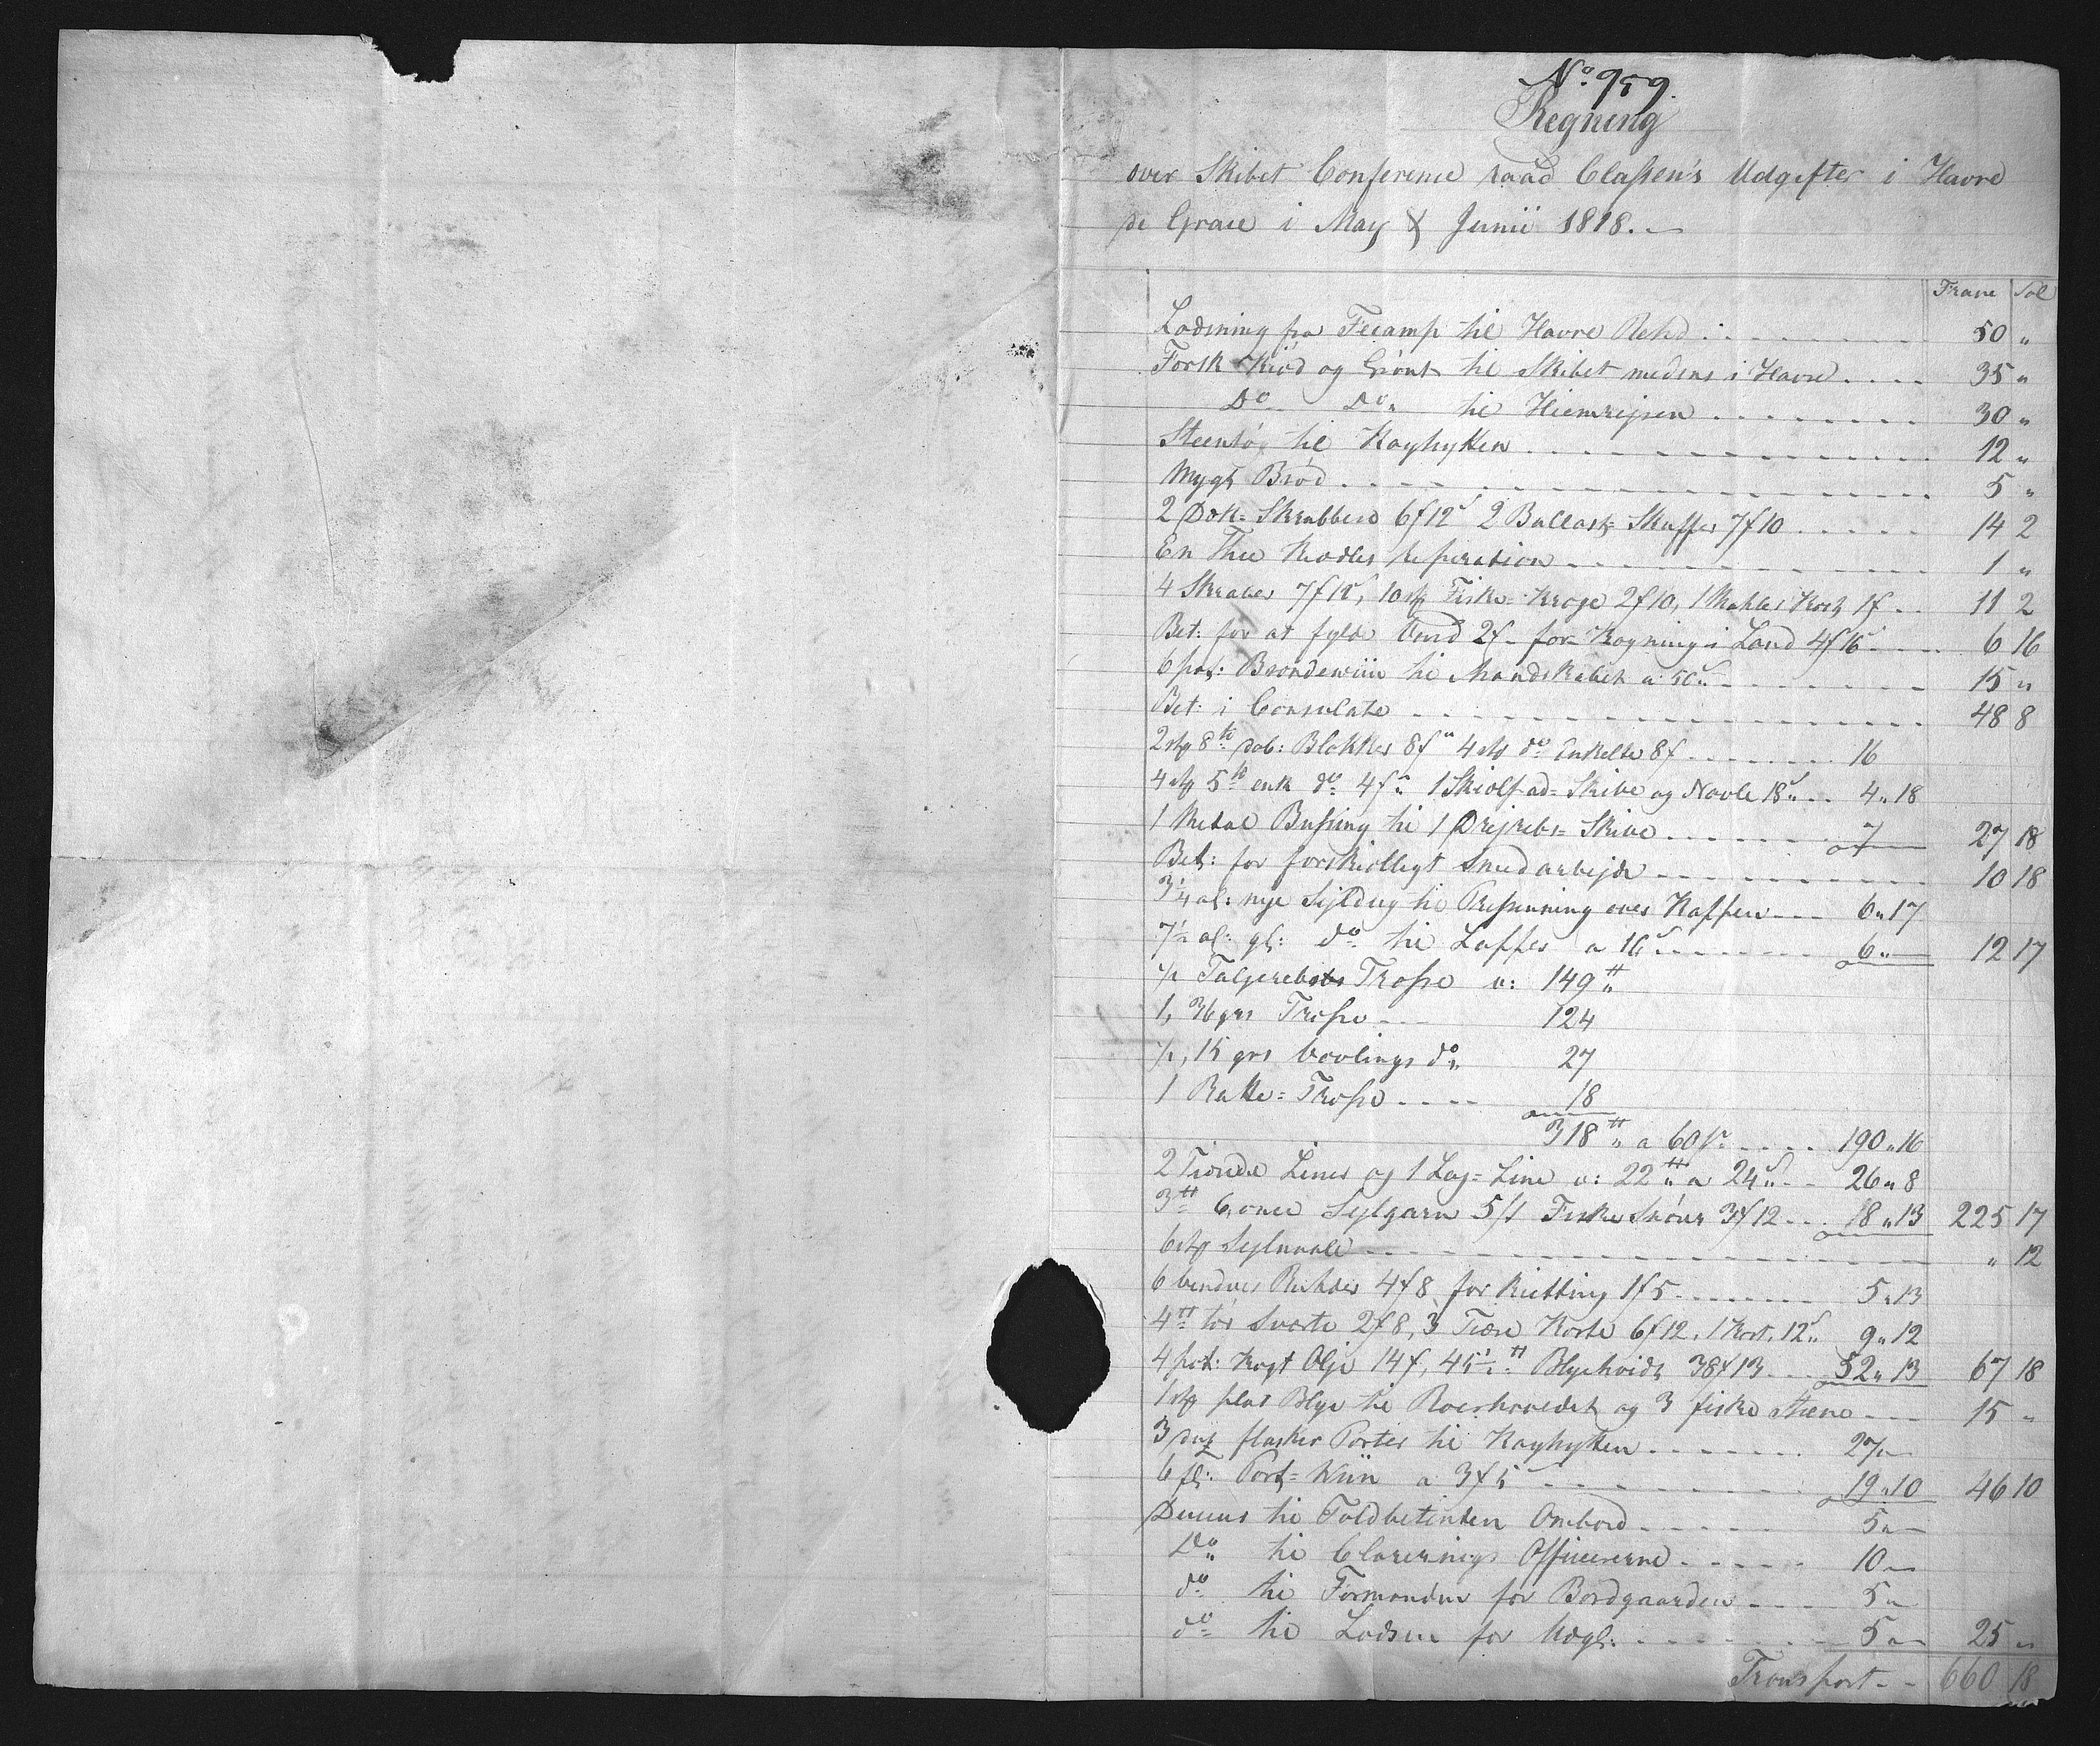 No. 959.
Regning
over Skibet Conference raad Classen's Udgifter i Havre
de Grace i May & Junii 1818.
Franc Sol
Lodsning fra Fecamp til Havre Rehd 50 "
Fersk Kiød og Grønt til Skibet medens i Havre 35 "
Do Do til Hiemrejsen 30 "
Steentøj til Kayhytten 12 "
Mygt Brød 5 "
2 Dek= Skrubbere 6f12s 2 Ballast= Skuffer 7f10 14 2
En Thee Kedles Reperation 1 "
4 Skraber 7f12s, 10 stk Fiske= kroge 2f10, 1 Mahler Kost 1f 11 2
Bet: for at fylde Vand 2f - for Kogning i Land 4f16s 6 16
6 pot: Brændeviin til Mandskabet a 50s 15 "
Bet: i Consulatet 48 8
2 stk 8te dob: Blokker 8f " 4 stk do Enkelte 8f 16
4 stk 5te enk do 4f " 1 Skiolf ad= Skive og Navle 18s 4 " 18
1 Metal Bussing til 1 Drejrebs= Skive 7 27 18
Bet: for forskielligt Smedarbejde 10 18
3 1/4 al: nye Sejldug til Presenning over Kappen 6 " 17
7 1/2 al: gl: do til Lapper a 16s 6 " 12 17
1/2 Taljerebs Trosse v: 149 ℔
1, 36 grs Trosse 124
1/2, 15 grs bovlings do 27
1 Rakke= Trosse 18
318 ℔ a 60 s 190 " 16
2 Tiende Liner og 1 Log= Line v: 22 ℔ a 24s 26 " 8
3 ℔ 6 once Sejlgarn 5/1 Fiske Snører 3f12 18 " 13 225 17
6 stk Sejlnaale " 12
6 bundter 4f8 for 1f5 5 " 13
4 ℔ tør Sværte 2f8, 3 Tiære Koste 6f12. 1 Kost. 12s 9 " 12
4 pot: kogt Olje 14f, 45 1/2 ℔ Blyehvidt 38f13 52 " 13 67 18
1 stk plad Blye til Roerhovedet og 3 fiske Steene 15 "
3 dus flasker Porter til Kayhytten 27 "
6 fl: Port= Wiin a 3f5 19 " 10 46 10
Duceur til Toldbetienten Ombord 5 "
Do til Clarerings Officererne 10 "
do til Formanden for Bordgaarden 5 "
do til Lodsen for Udgl: 5 " 25 "
Transport 660 18